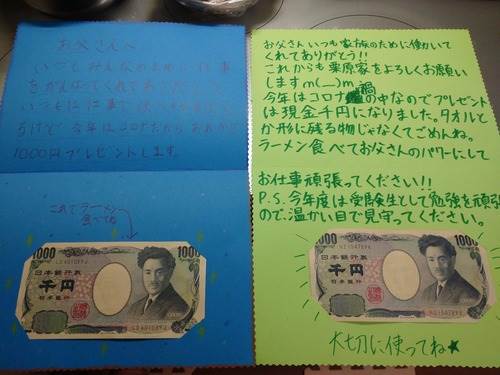 お父さんへ
いつもみんなのために仕事
をがんばってくれてありがとう
いつもは仕事で
けど、今年はコロナだから
1000円プレゼントします。
これでラーメン
食べてね
1000
日本銀行券
千円
日本銀行
1000
お父さんいつも家族のために働いて
くれてありがとう!!
これからも栗原家をよろしくお願い
しますm(__)m
今年はコロナ禍の中なのでプレゼント
は現金千円になりました。タオルと
か形に残る物じゃなくてごめんね。
ラーメン食べてお父さんのパワーにして
お仕事頑張ってください!!
P.S. 今年度は受験生として勉強を頑張る
ので、温かい目で見守ってください。
1000
日本銀行券
千円
日本銀行
1000
大切に使ってね★